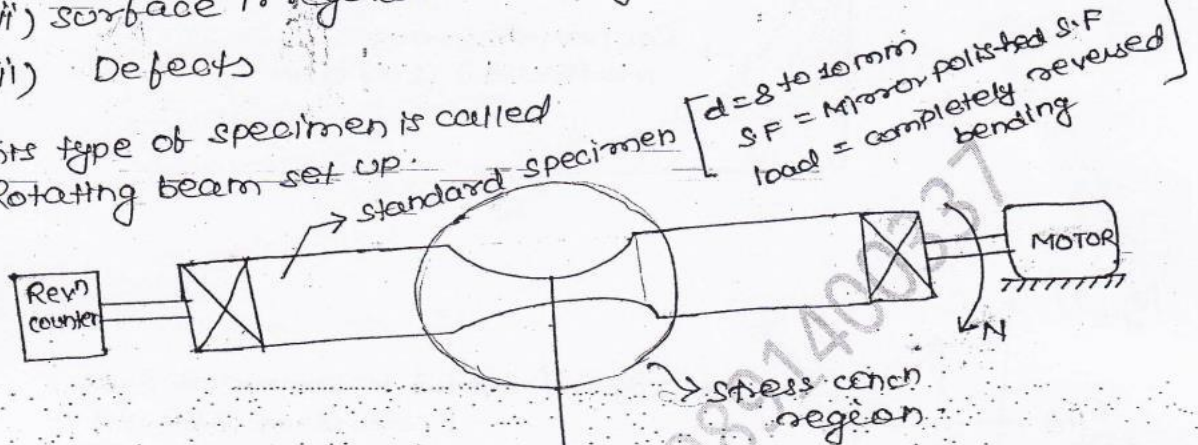 ii) surface
iii) Defects
This type of specimen is called
Rotating beam set up.
standard specimen
d = 8 to 10 mm
SF = Mirror polished S.F
load = completely reversed
bending
Revn
counter
MOTOR
N
stress concn
region.
089140037